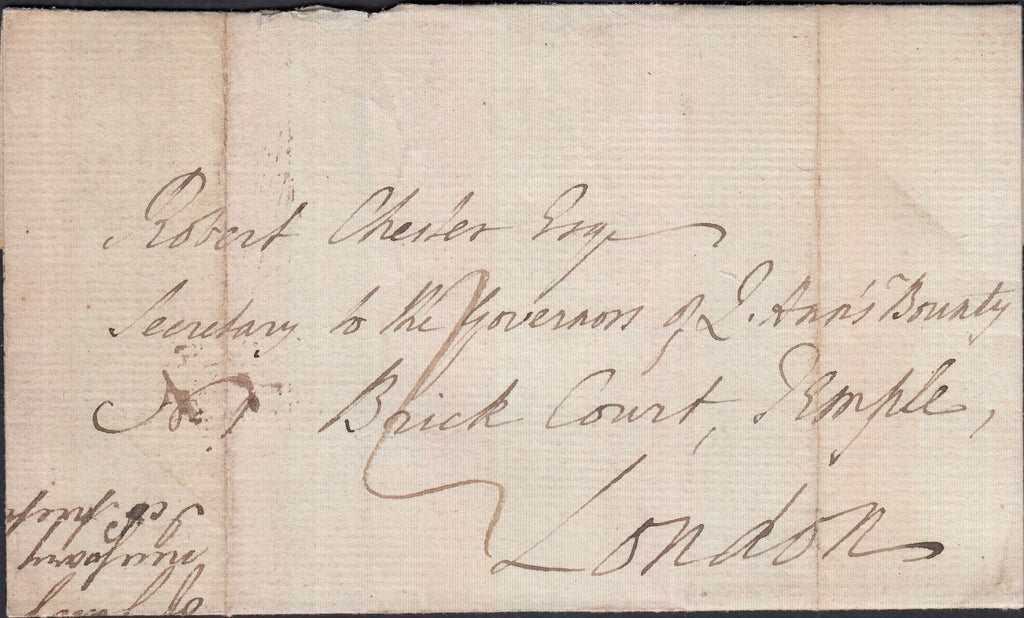 Robert Chester Esqr
Secretary to the Governors of Q. Ann's Bounty
No. 1 Brick Court, Temple,
London